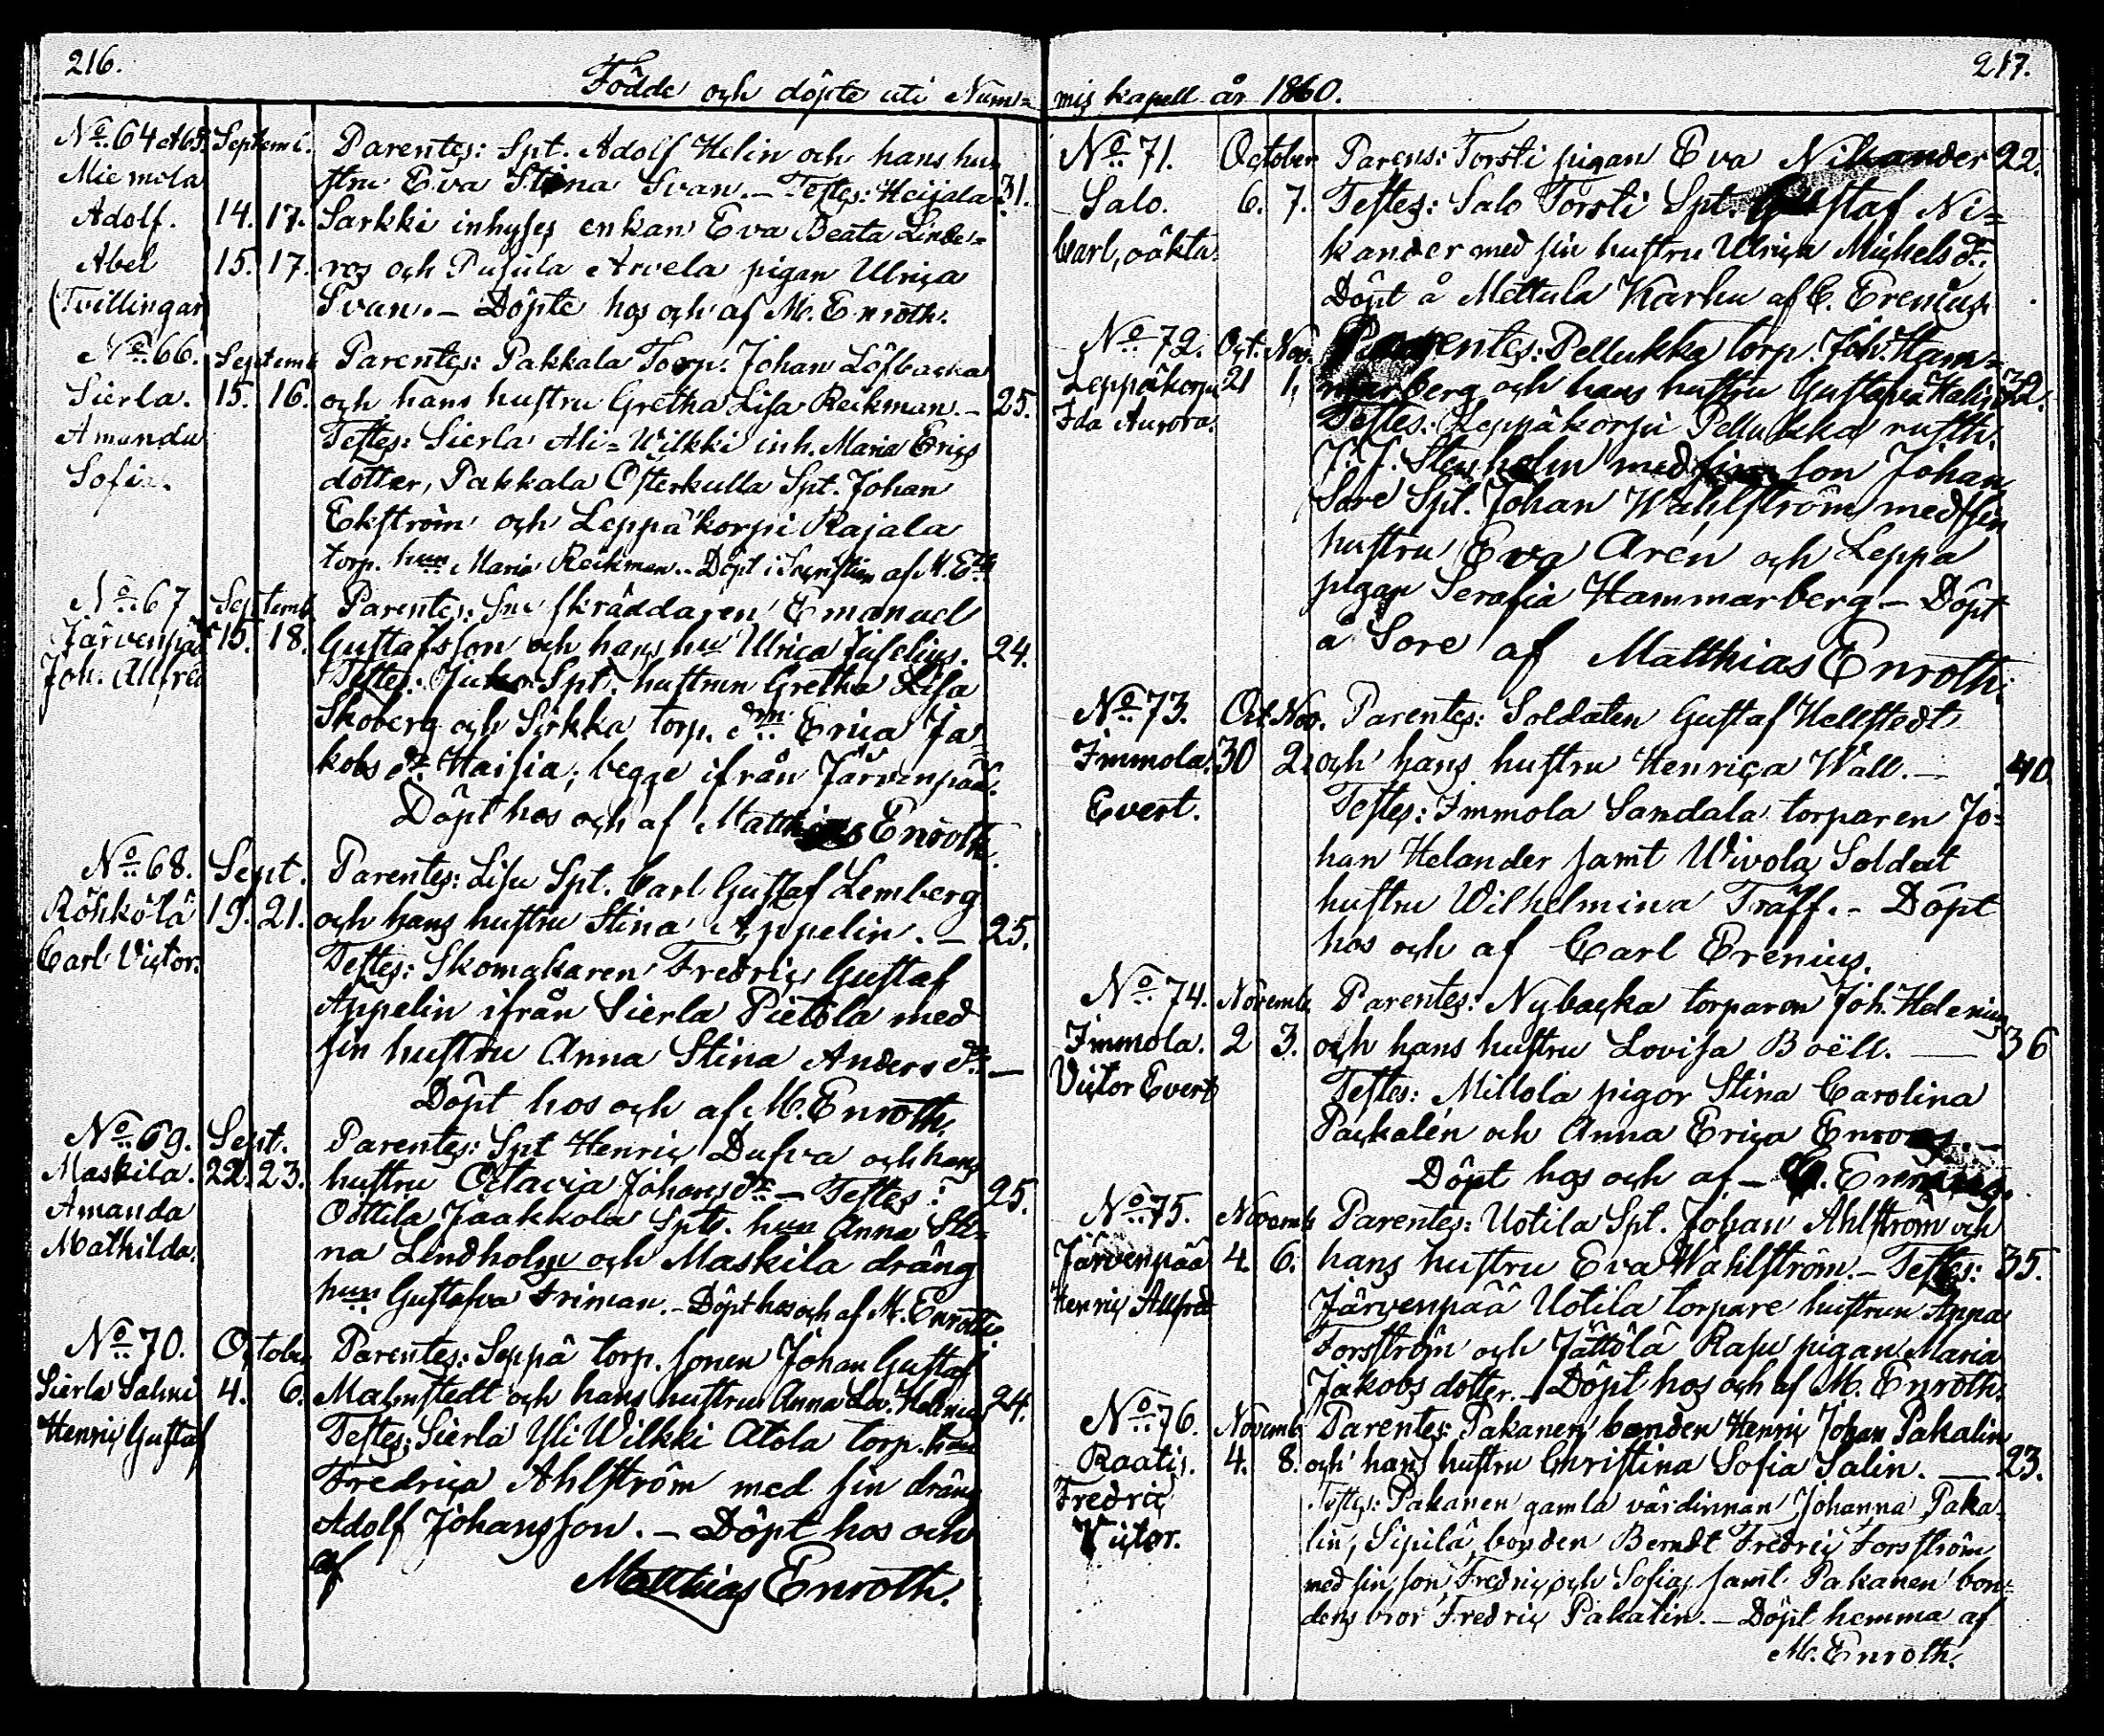 216.
Födde och döpte uti Num=
No. 64 et 65. Septemb. Parentes: Spt. Adolf Helin och hans hu
Miemola stru Eva Stina Svan. — Testes: Heijala 31.
Adolf. 14. 17. Sarkki inhyses enkan Eva Beata Linde=
Abel 15. 17. ros och Pusula Arvela pigan Ulrica
(Tvillingar) Svan. — Döpte hos och af M. Enroth.
No. 66. Septemb Parentes: Pakkala Torp. Johan Löfbacka
Sierla. 15. 16. och hans hustru Gretha Lisa Reckman. — 25.
Amanda Testes: Sierla Ali=Wilkki inh. Maria Erics
Sofia. dotter, Pakkala Österkulla Spt. Johan
Ekström och Leppäkorpi Rajala
torp. hun Maria Reckman.. Döpt i af M. Eth
No. 67 Septemb Parentes: skräddaren Emanuel
Järvenpää 15. 18. Gustafsson och hans hu Ulrica Juselius. 24.
Joh. Alfred Testes: Spt. hustrun Gretha Lisa
Skoberg och Sirkka torp. Erica Ja=
kobs dr Haisia, begge ifrån Järvenpää.
Döpt hos och af Matthias Enroth.
No. 68. Sept. Parentes: Lisu Spt. Carl Gustaf Lemberg
Röhkölä 19. 21. och hans hustru Stina Appelin. — 25.
Carl Victor. Testes: Skomakaren Fredric Gustaf
Appelin ifrån Sierla Pietola med
sin hustru Anna Stina Anders dr. —
Döpt hos och af M. Enroth.
No. 69. Sept. Parentes: Spt Henric Dufva och hans
Maskila. 22. 23. hustru Octavia Johans dr — Testes: 25.
Amanda Ottila Jaakkola Spts. hun Anna Sti=
Mathilda. na Lindholm och Maskila dräng
hun Gustafva Friman. — Döpt hos och af M. Enroth.
No. 70. October Parentes: Seppä torp. sonen Johan Gustaf
Sierla Salmi 4. 6. Malmstedt och hans hustru Anna Lov. Helenius 24.
Henric Gustaf Testes: Sierla Yli Wilkki Atola torp. hun
Fredrica Ahlström med sin dräng
Adolf Johansson. — Döpt hos och
af Matthias Enroth.
217.
mis kapell år 1860.
No. 71. October Parens: Torsti pigan Eva Nikander 22.
Salo. 6. 7. Testes: Salo Torsti Spt. Gustaf Ni=
Carl, oäkta. kander med sin hustru Ulrica Michels dr.
Döpt å Mettula Karhu af C. Erenius.
No. 72. Oct. Nov. Parentes: Pellukka torp. Joh. Ham=
Leppäkorpi 21 1. marberg och hans hustru Gustava Helin 32.
Ida Aurora. Testes: Leppäkorpi Pellukka rusth.
J. J. Stenholm med sin son Johan,
Sore Spt. Johan Wahlström med sin
hustru Eva Aren och Leppä
pigan Serafia Hammarberg — Döpt
å Sore af Matthias Enroth.
No. 73. Oct. Nov. Parentes: Soldaten Gustaf Hellstedt
Immola. 30 2. och hans hustru Henrica Wäll. — 40.
Evert. Testes: Immola Sandala torparen Jo=
han Helander samt Wivola Soldat
hustru Wilhelmina Träff. — Döpt
hos och af Carl Erenius.
No. 74. Novemb. Parentes: Nybacka torparen Joh. Helenius
Immola. 2 3. och hans hustru Lovisa Boëll. — 36
Victor Evert Testes: Millola pigor Stina Carolina
Packalén och Anna Erica —
Döpt hos och af — C. Erenius.
No. 75. Novemb Parentes: Uotila Spt. Johan Ahlström och
Järvenpää 4. 6. hans hustru Eva Wahlström. — Testes: 35.
Henric Alfred Järvenpää Uotila torpare hustrun Anna
Forsström och Jättölä Rasu pigan Maria
Jakobs dotter. — Döpt hos och af M. Enroth.
No. 76. Novemb. Parentes: Pakanen bonden Henric Johan Pakalin
Raatis. 4. 8. och hans hustru Christina Sofia Salin. — 23.
Fredric Testes: Pakanen gamla värdinnan Johanna Paka=
Victor. lin, Sipilä bonden Berndt Fredric Forsström
med sin son Fredric och Sofia, saml. Pakanen bon=
dens bror Fredric Pakalin. — Döpt hemma af
M. Enroth.